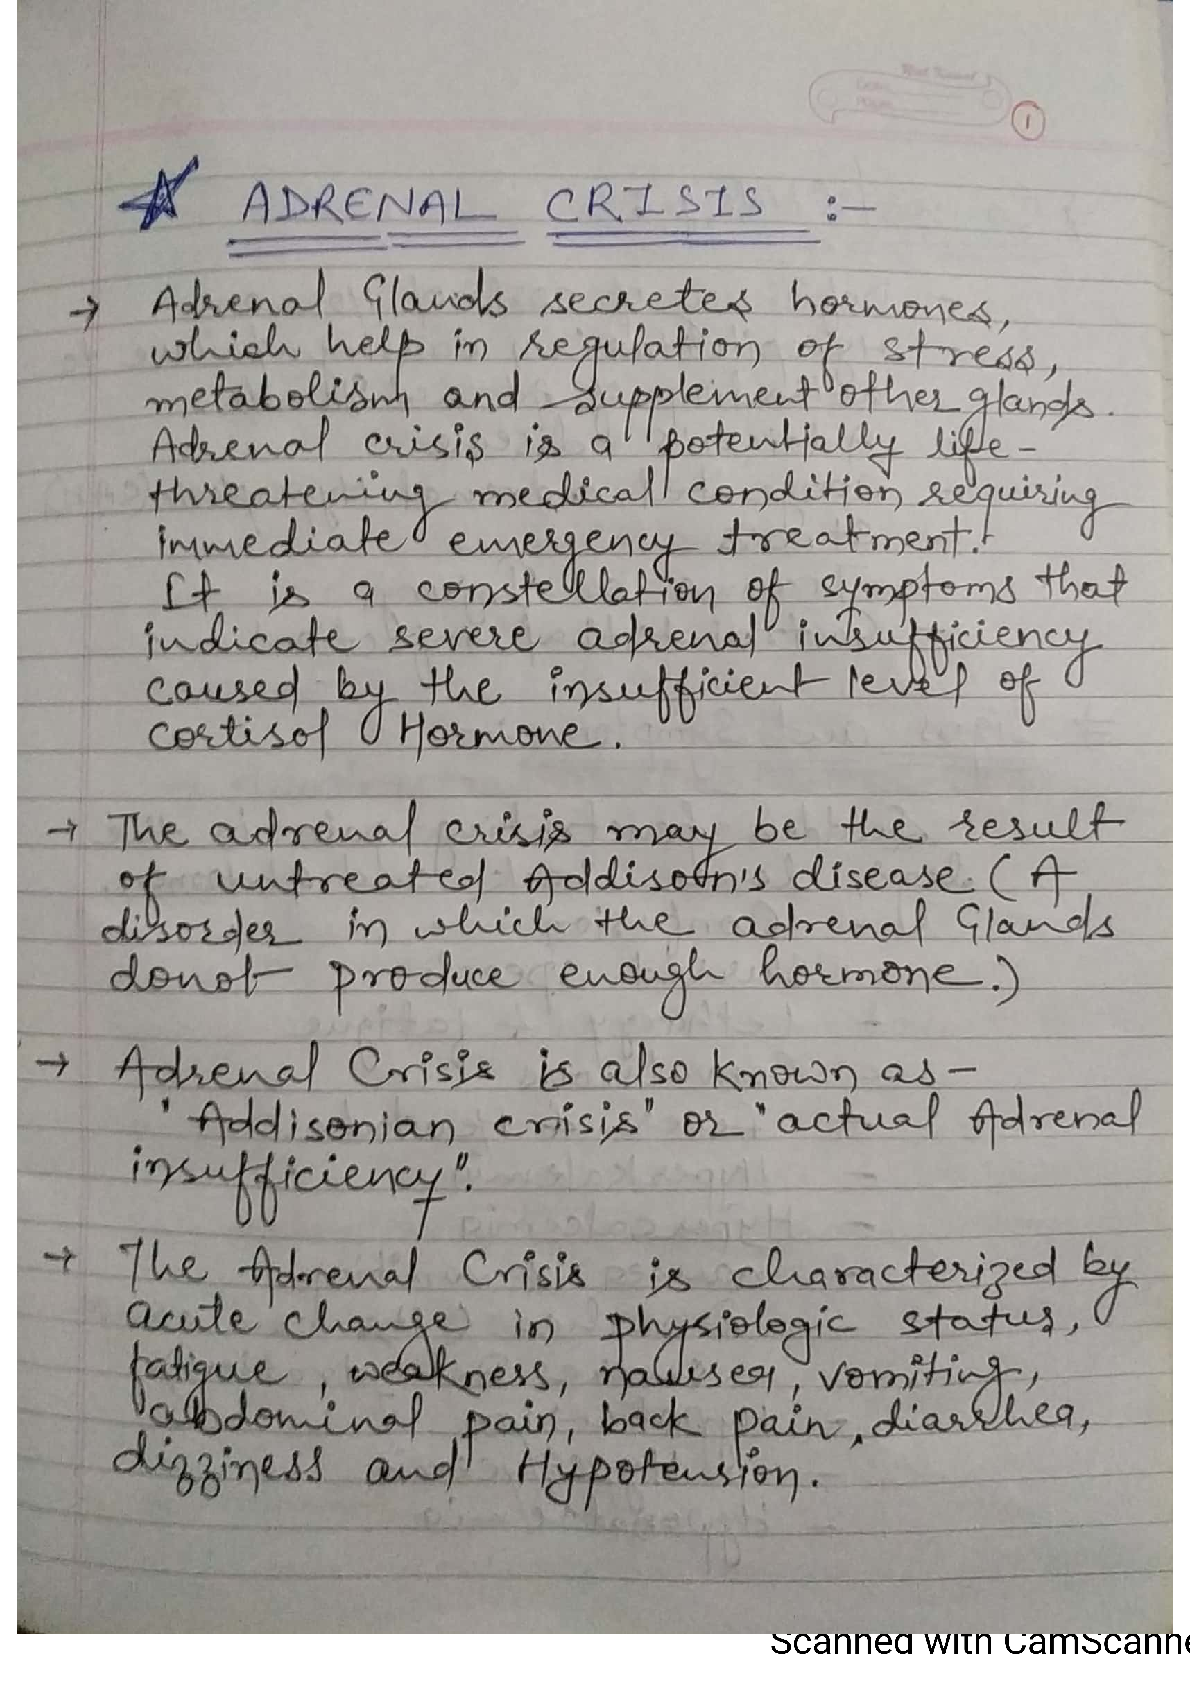 1
ADRENAL CRISIS :-
→ Adrenal Glands secretes hormones,
which help in regulation of stress,
metabolism and supplement other glands.
Adrenal crisis is a potentially life-
threatening medical condition requiring
immediate emergency treatment.
It is a constellation of symptoms that
indicate severe adrenal insufficiency
caused by the insufficient level of
cortisol Hormone.
→ The adrenal crisis may be the result
of untreated Addison's disease. (A
disorder in which the adrenal Glands
donot produce enough hormone.)
→ Adrenal Crisis is also known as -
"Addisonian crisis" or "actual Adrenal
insufficiency".
→ The Adrenal Crisis is characterized by
acute change in physiologic status,
fatigue, weakness, nausea, vomiting,
abdominal pain, back pain, diarrhea,
dizziness and Hypotension.
Scanned with CamScanne